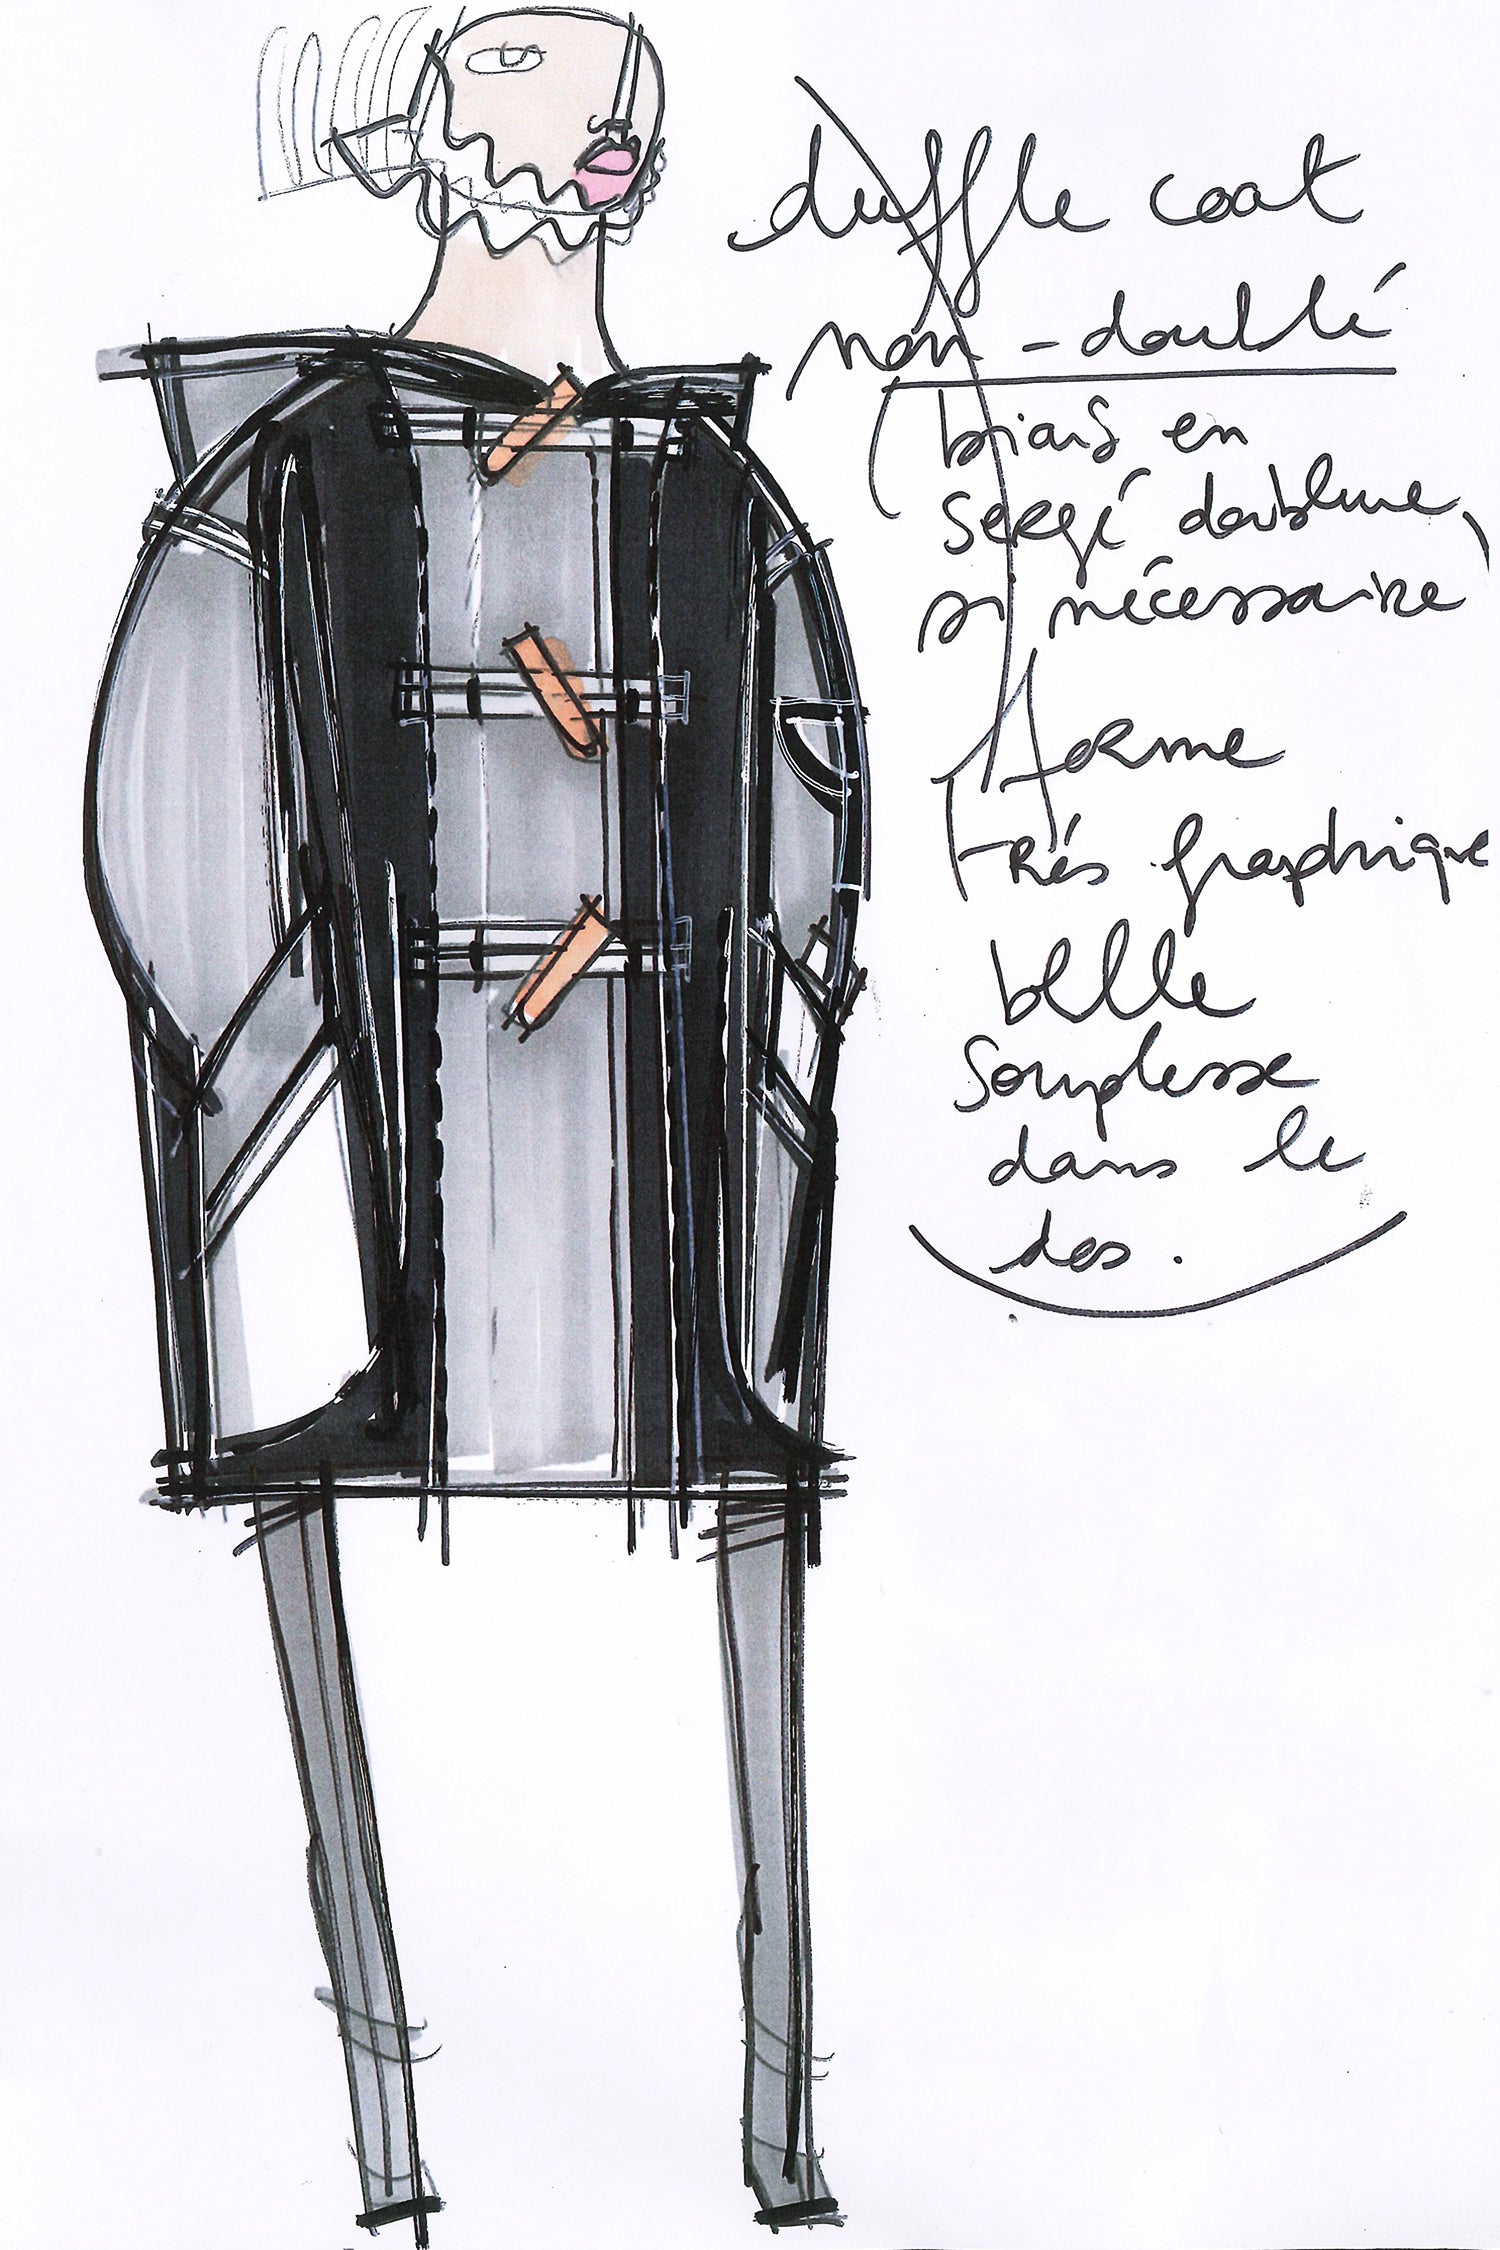 duffle coat
non-doublé
(biais en
sergé doublure
si nécessaire)
forme
très graphique
belle
souplesse
dans le
dos.